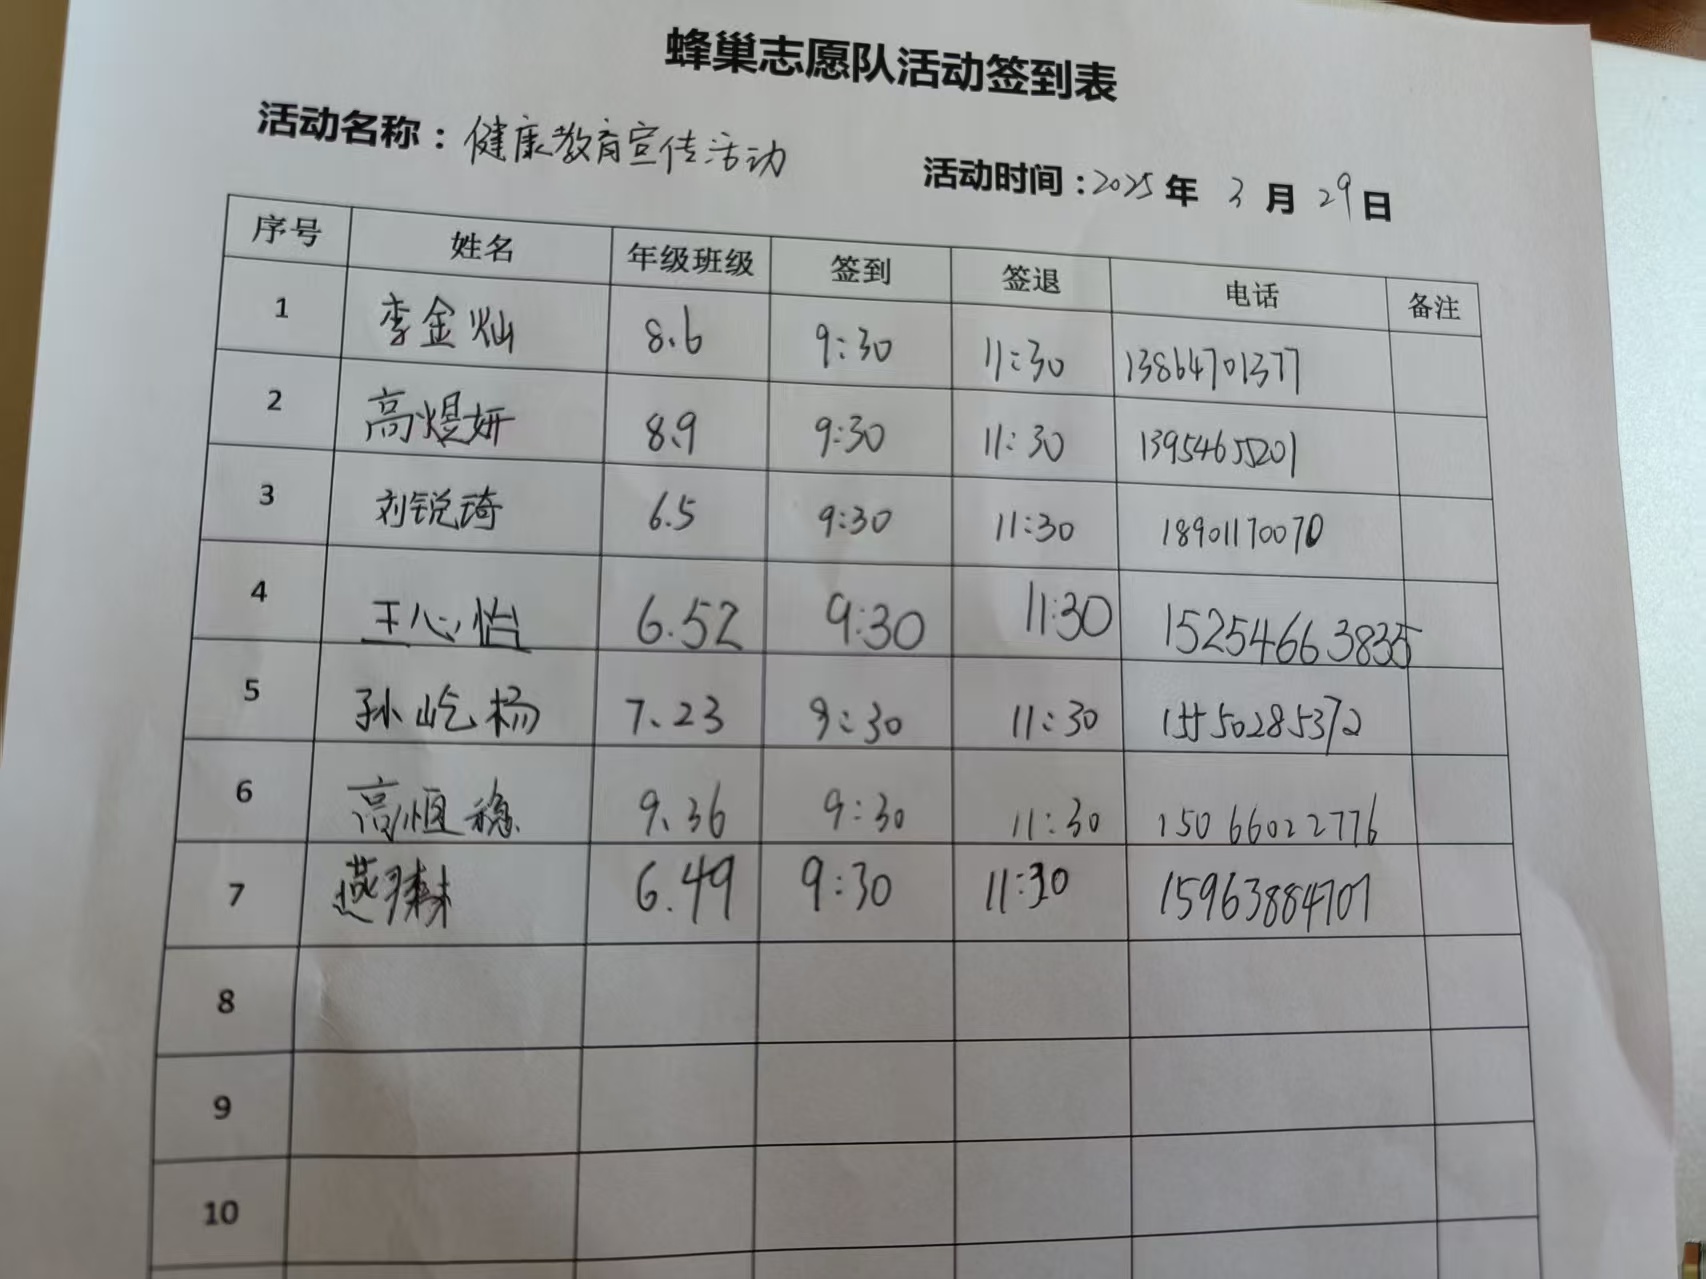 蜂巢志愿队活动签到表
活动名称：健康教育宣传活动 活动时间：2025年 3月 29日
序号 姓名 年级班级 签到 签退 电话 备注
1 李金灿 8.6 9:30 11:30 13864701377
2 高煜妍 8.9 9:30 11:30 13954655201
3 刘锐琦 6.5 9:30 11:30 18901170070
4 王心怡 6.52 9:30 11:30 15254663835
5 孙屹杨 7.23 9:30 11:30 15550285372
6 高恒稳 9.36 9:30 11:30 15066022776
7 燕 6.49 9:30 11:30 15963884707
8
9
10